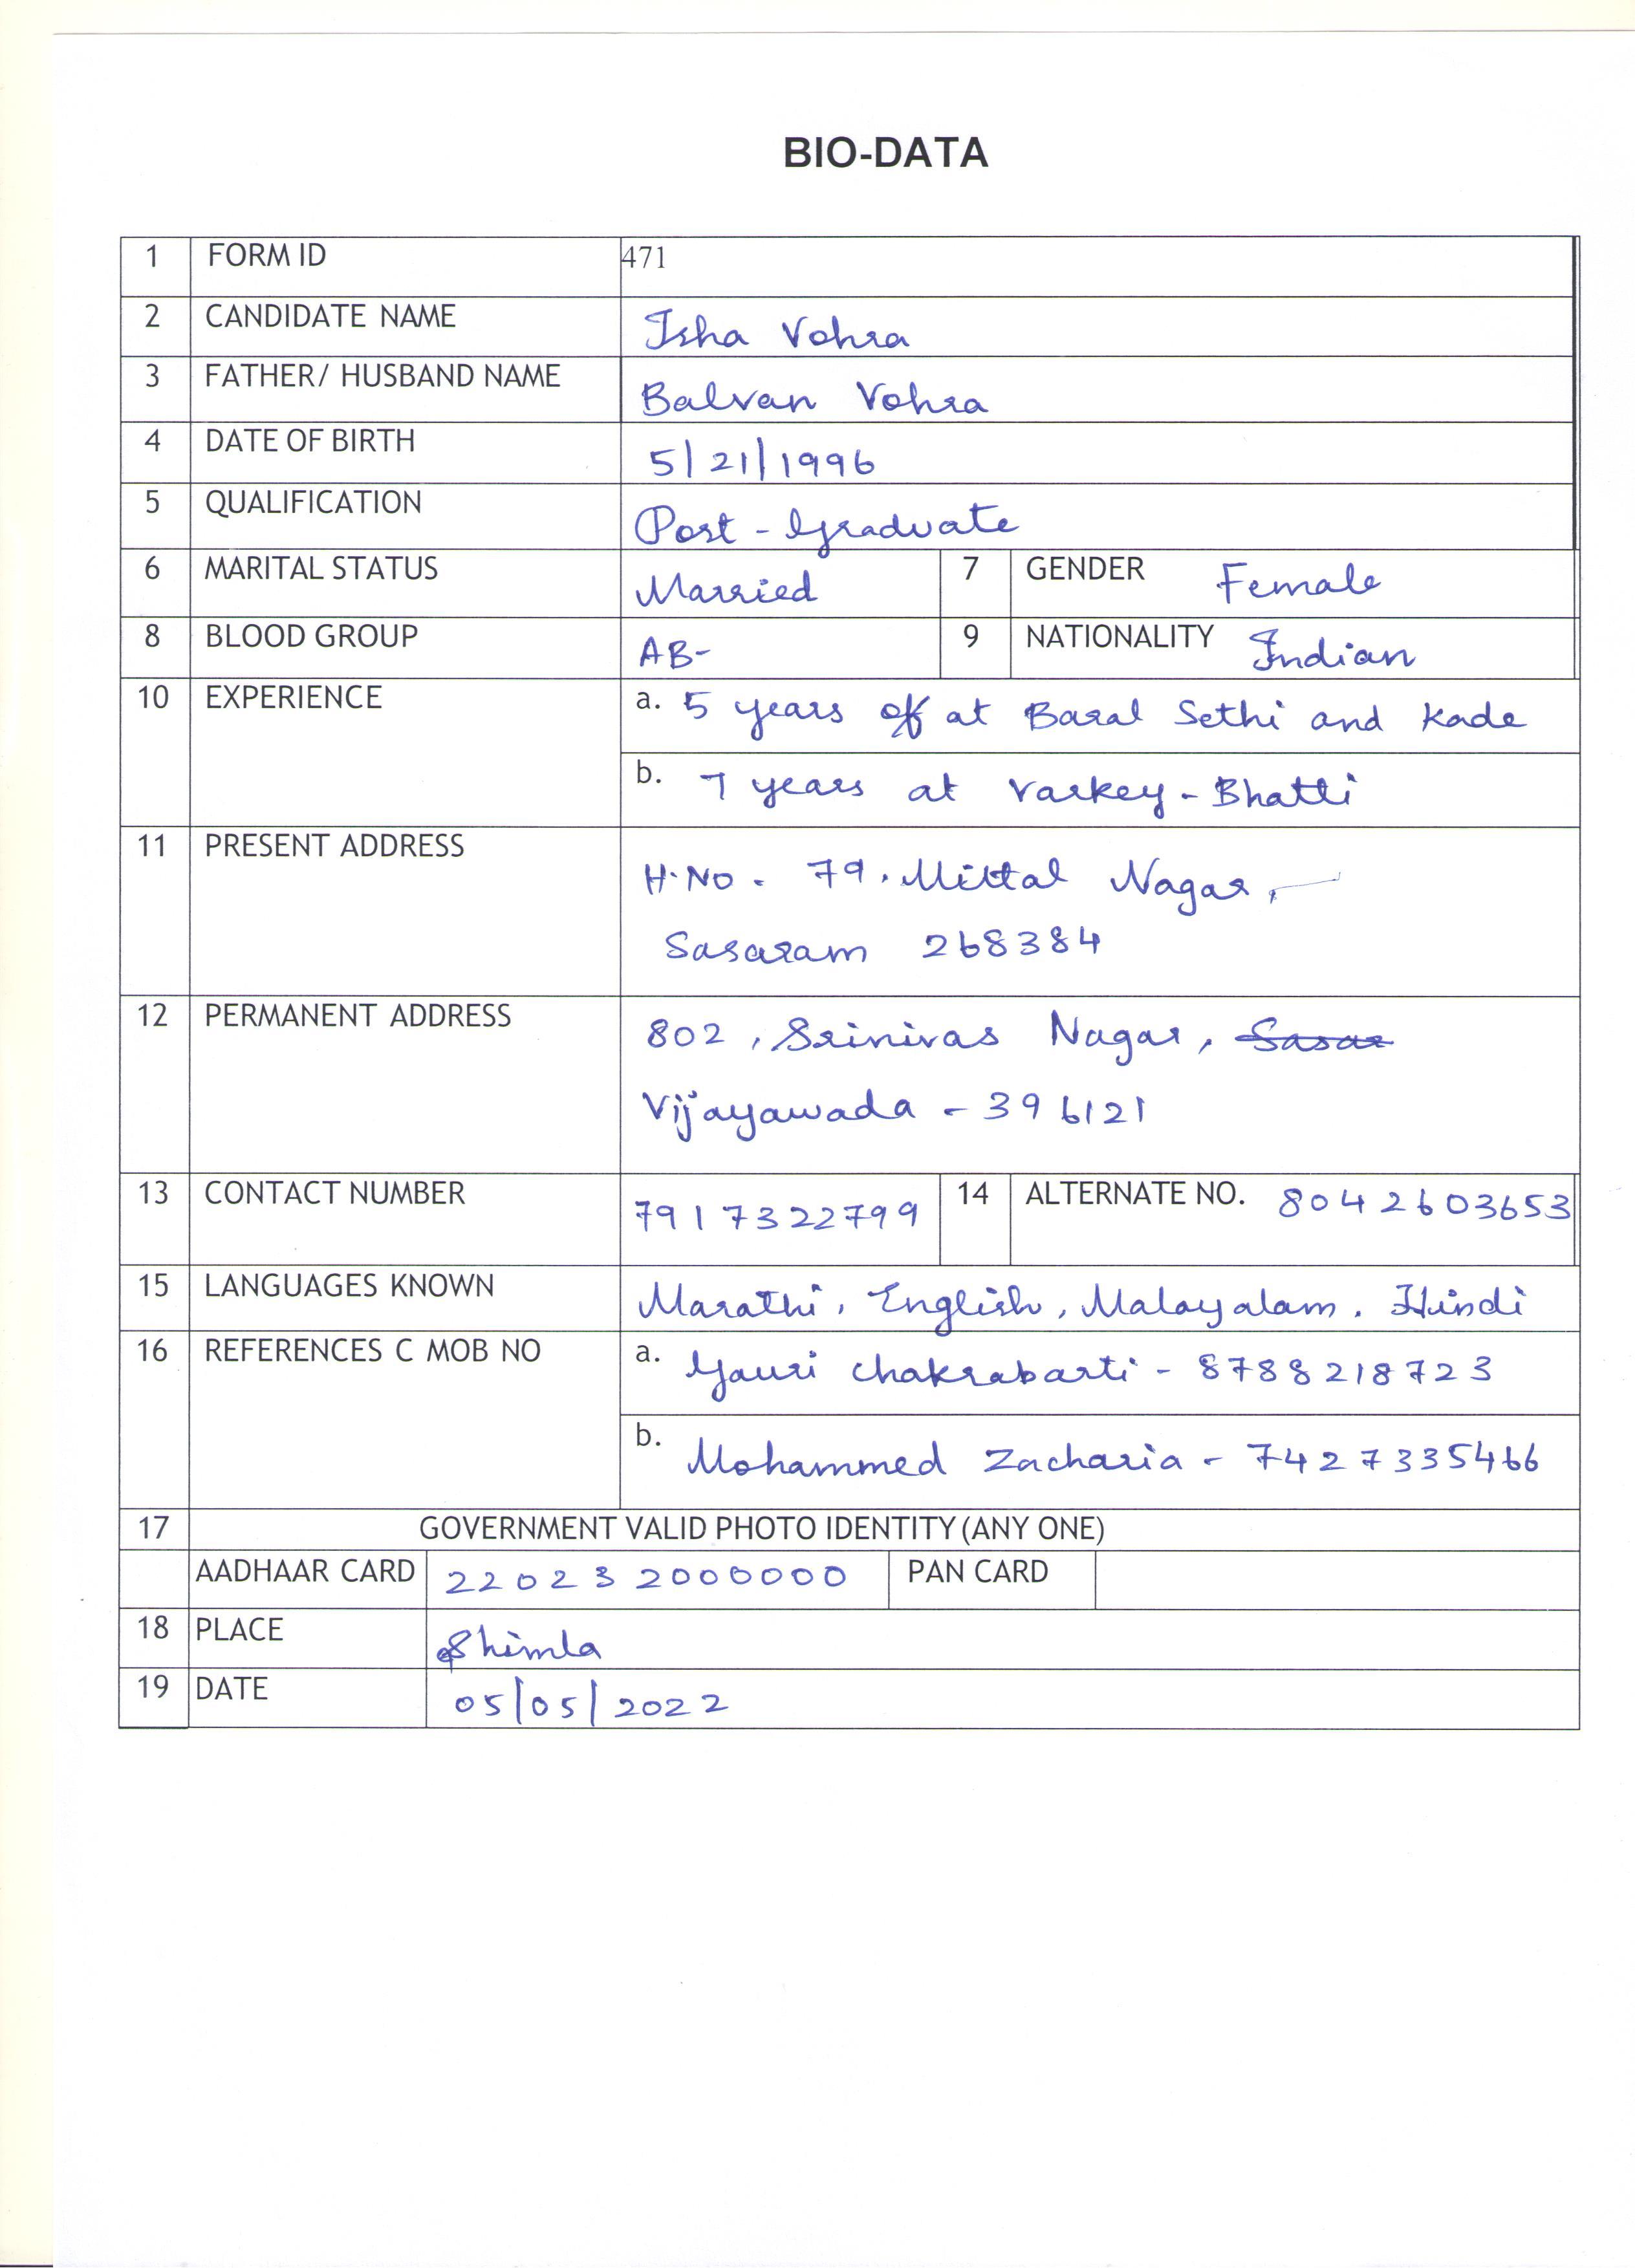 BIO-DATA
1 FORM ID 471
2 CANDIDATE NAME Isha Vohra
3 FATHER/ HUSBAND NAME Balvan Vohra
4 DATE OF BIRTH 5/21/1996
5 QUALIFICATION Post-Graduate
6 MARITAL STATUS Married 7 GENDER Female
8 BLOOD GROUP AB- 9 NATIONALITY Indian
10 EXPERIENCE a. 5 years of at Baral Sethi and Kade
b. 7 years at Varkey-Bhatti
11 PRESENT ADDRESS H.No. 79, Mittal Nagar,
Sasaram 268384
12 PERMANENT ADDRESS 802, Srinivas Nagar, Sasar
Vijayawada - 396121
13 CONTACT NUMBER 7917322799 14 ALTERNATE NO. 8042603653
15 LANGUAGES KNOWN Marathi, English, Malayalam, Hindi
16 REFERENCES C MOB NO a. Gauri Chakrabarti - 8788218723
b. Mohammed Zacharia - 7427335466
17 GOVERNMENT VALID PHOTO IDENTITY (ANY ONE)
AADHAAR CARD 220232000000 PAN CARD
18 PLACE Shimla
19 DATE 05/05/2022